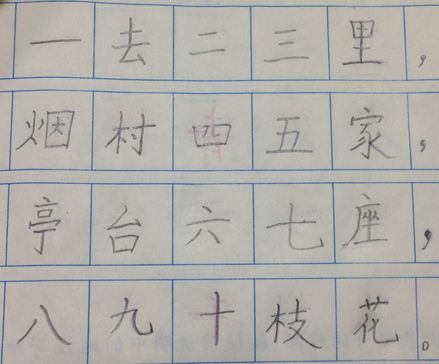 一去二三里，
烟村四五家，
亭台六七座，
八九十枝花。